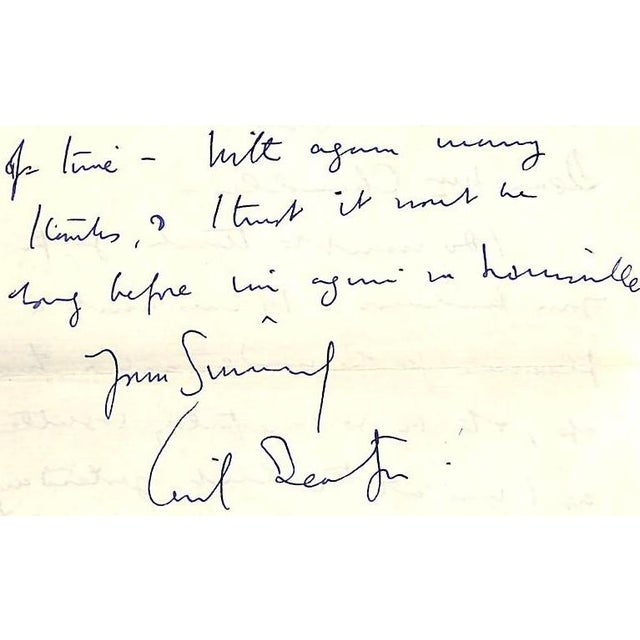 of time - With again many
thanks, & I trust it wont be
long before I'm again in Louisville
Yours Sincerely
Cecil Beaton.